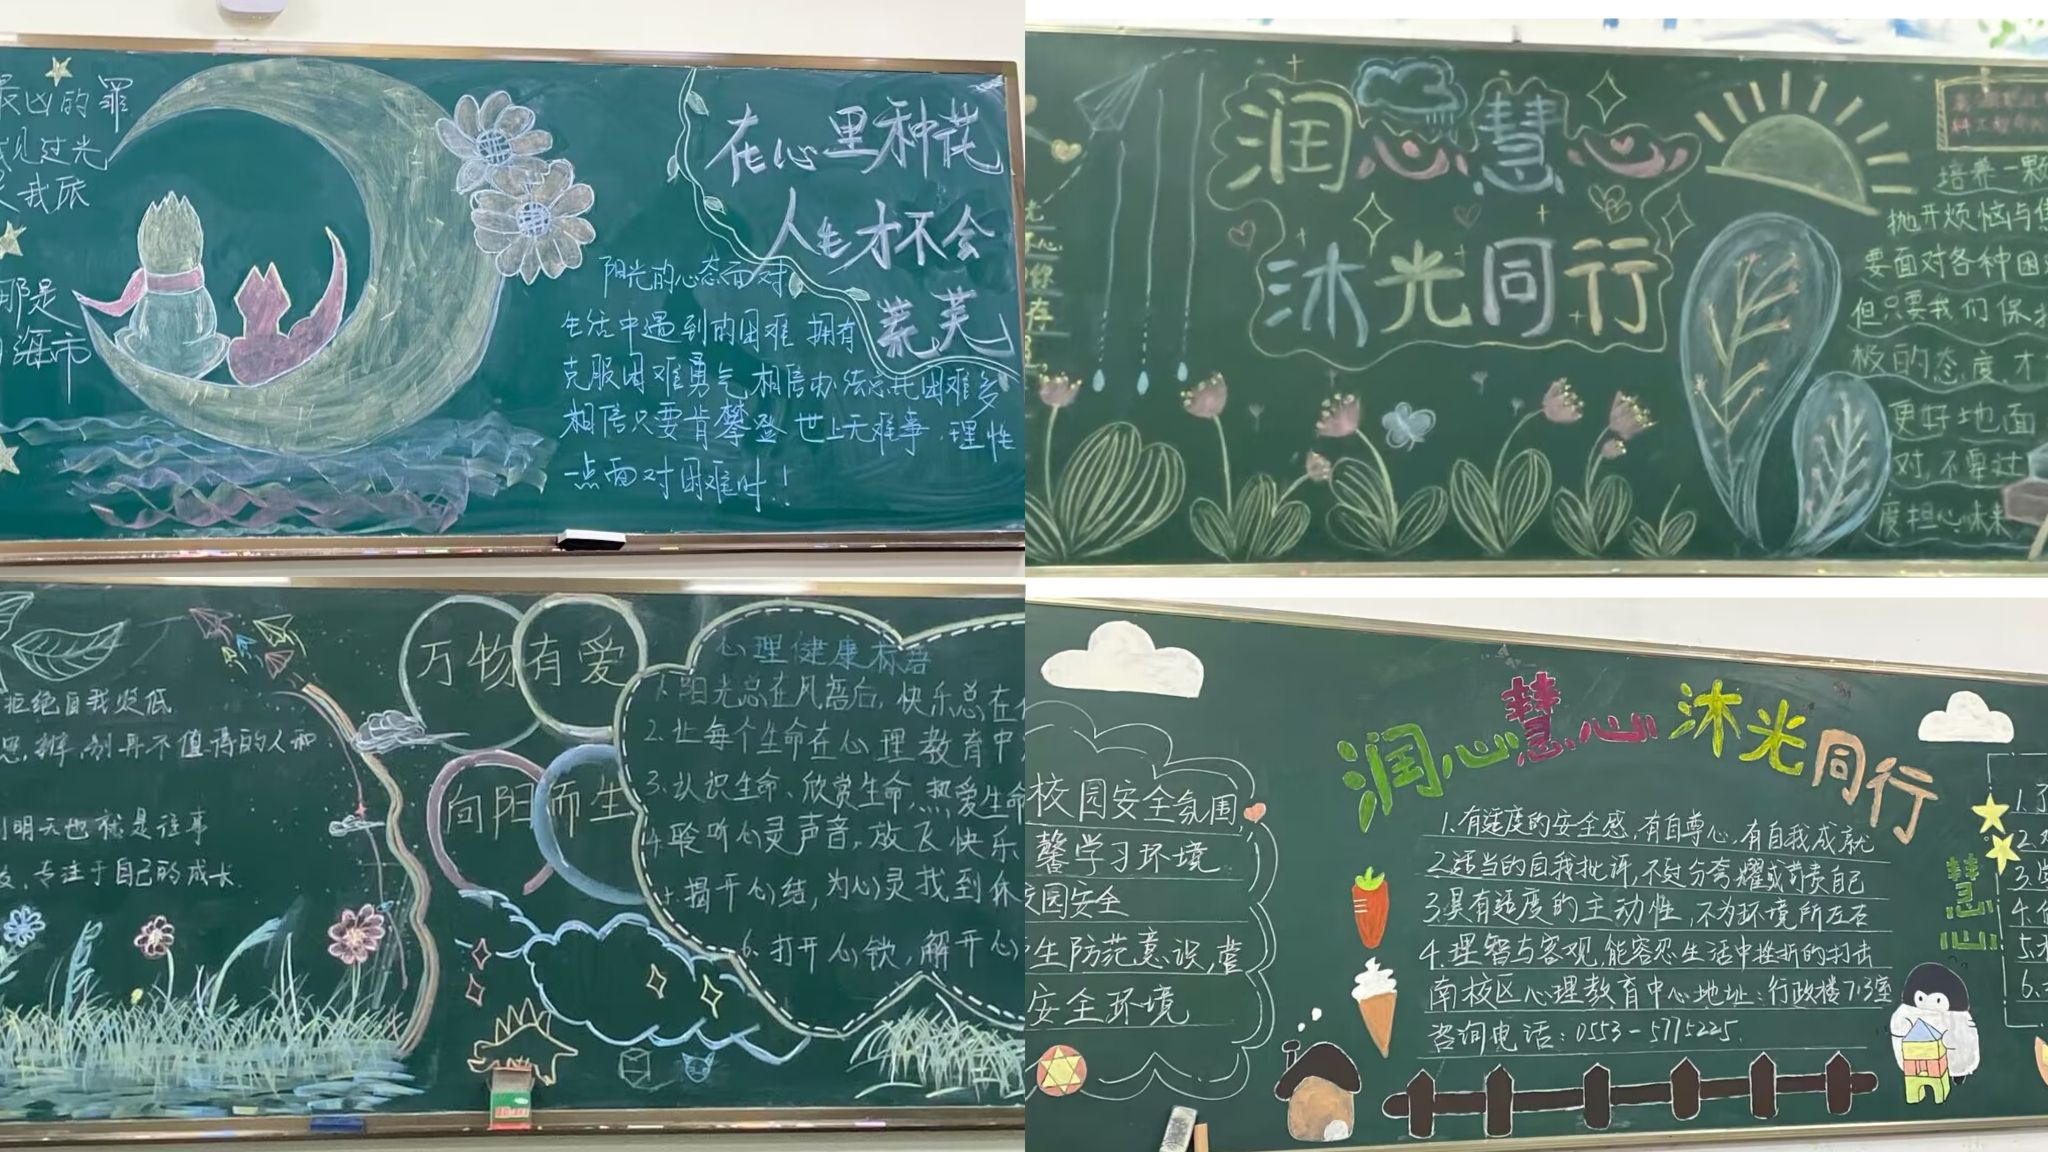 最凶的罪
我见过光
我
那是
海市
在心里种花
人生才不会
荒芜
阳光的心态面对
生活中遇到的困难 拥有
克服困难勇气,相信办法总比困难多
相信只要肯攀登 世上无难事,理性
一点面对困难时!
润心慧心
沐光同行
保
存
培养一颗
抛开烦恼与
要面对各种困
但只要我们保持
极的态度,才
更好地面
对,不要过
度担心未来
拒绝自我贬低
思辨,别再不值得的人和
明天也就是往事
专注于自己的成长
万物有爱
向阳而生
心理健康标语
1.阳光总在风雨后,快乐总在
2.让每个生命在心理教育中
3.认识生命、欣赏生命,热爱生命
4.聆听心灵声音,放飞快乐
5.揭开心结,为心灵找到休
6.打开心锁,解开心
校园安全氛围,
馨学习环境
校园安全
生防范意识,营
安全环境
润心慧心 沐光同行
1.有适度的安全感,有自尊心,有自我成就
2.适当的自我批评,不过分夸耀或苛责自己
3.具有适度的主动性,不为环境所左右
4.理智与客观,能容忍生活中挫折的打击
南校区心理教育中心地址:行政楼713室
咨询电话:0553-5775225.
慧心
1.
2.
3.
4.
5.
6.